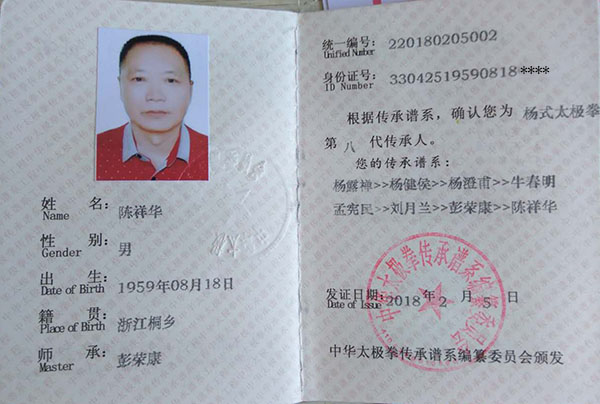 姓 名：
Name
陈祥华
性 别：
Gender
男
出 生：
Date of Birth
1959年08月18日
籍 贯：
Place of Birth
浙江桐乡
师 承：
Master
彭荣康
统一编号：
Unified Number
220180205002
身份证号：
ID Number
33042519590818****
根据传承谱系，确认您为 杨式太极拳
第 八 代传承人。
您的传承谱系：
杨露禅>>杨健侯>>杨澄甫>>牛春明
孟宪民>>刘月兰>>彭荣康>>陈祥华
发证日期：
Date of Issue
2018 年 2 月 5 日
中华太极拳传承谱系编纂委员会
中华太极拳传承谱系编纂委员会颁发